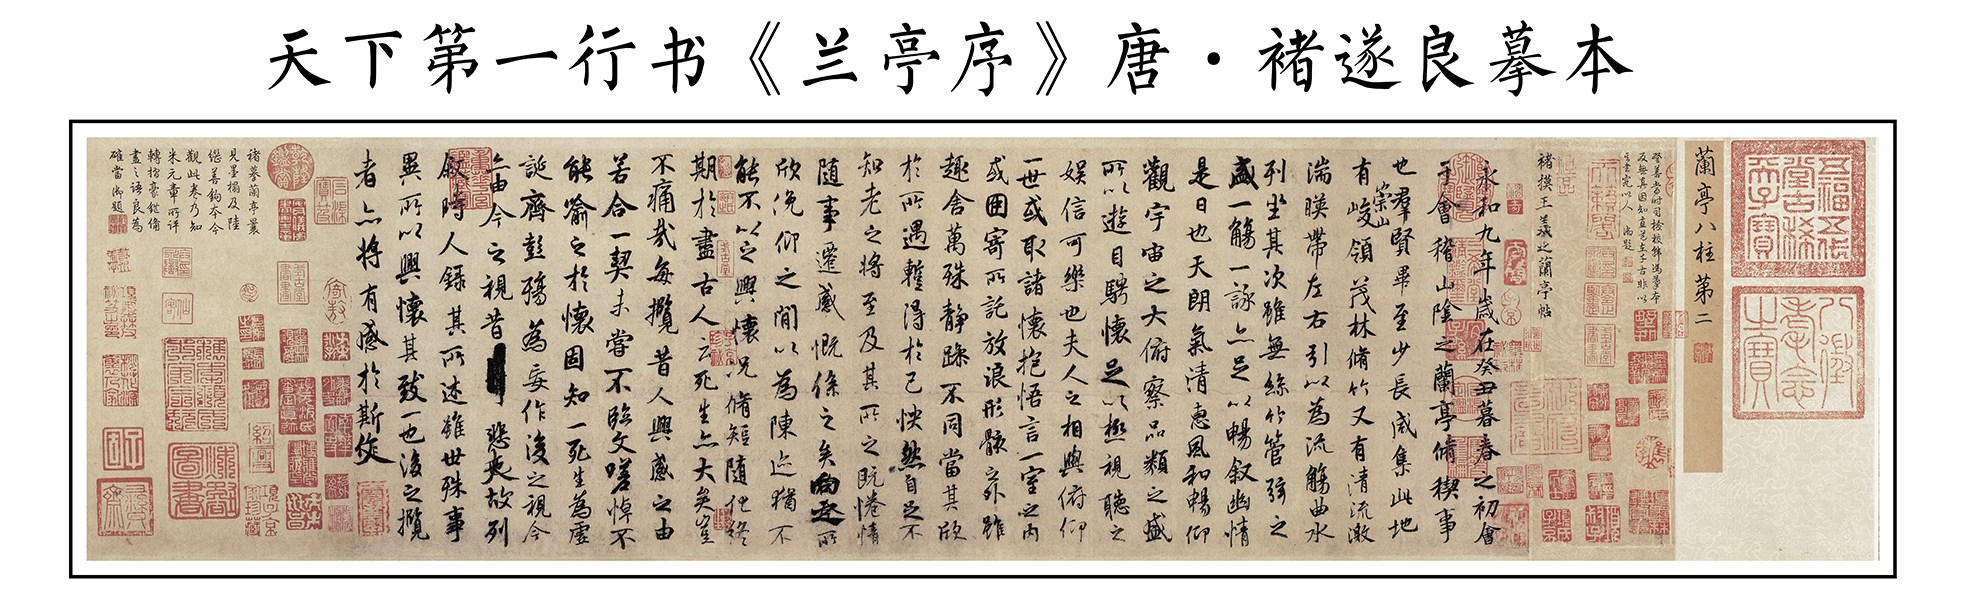 天下第一行书《兰亭序》唐·褚遂良摹本
五福五代堂古稀天子寶
八徵耄念之寶
蘭亭八柱第二
褚摸王羲之蘭亭帖
永和九年歲在癸丑暮春之初會
于會稽山陰之蘭亭脩稧事
也群賢畢至少長咸集此地
有崇山峻領茂林脩竹又有清流激
湍暎帶左右引以為流觴曲水
列坐其次雖無絲竹管弦之
盛一觴一詠亦足以暢叙幽情
是日也天朗氣清惠風和暢仰
觀宇宙之大俯察品類之盛
所以遊目騁懷足以極視聽之
娛信可樂也夫人之相與俯仰
一世或取諸懷抱悟言一室之內
或因寄所託放浪形骸之外雖
趣舍萬殊静躁不同當其欣
於所遇蹔得於己怏然自足不
知老之將至及其所之既惓情
隨事遷感慨係之矣向之所
欣俛仰之間以為陳迹猶不
能不以之興懷況脩短隨化終
期於盡古人云死生亦大矣豈
不痛哉每攬昔人興感之由
若合一契未嘗不臨文嗟悼不
能喻之於懷固知一死生為虛
誕齊彭殤為妄作後之視今
亦由今之視昔悲夫故列
叙時人錄其所述雖世殊事
異所以興懷其致一也後之攬
者亦將有感於斯作
褚摹蘭亭最
見墨搨及陸
繼善鉤本今
觀此卷乃知
米元章所評
轉折豪鋩備
盡之語良為
確當御題